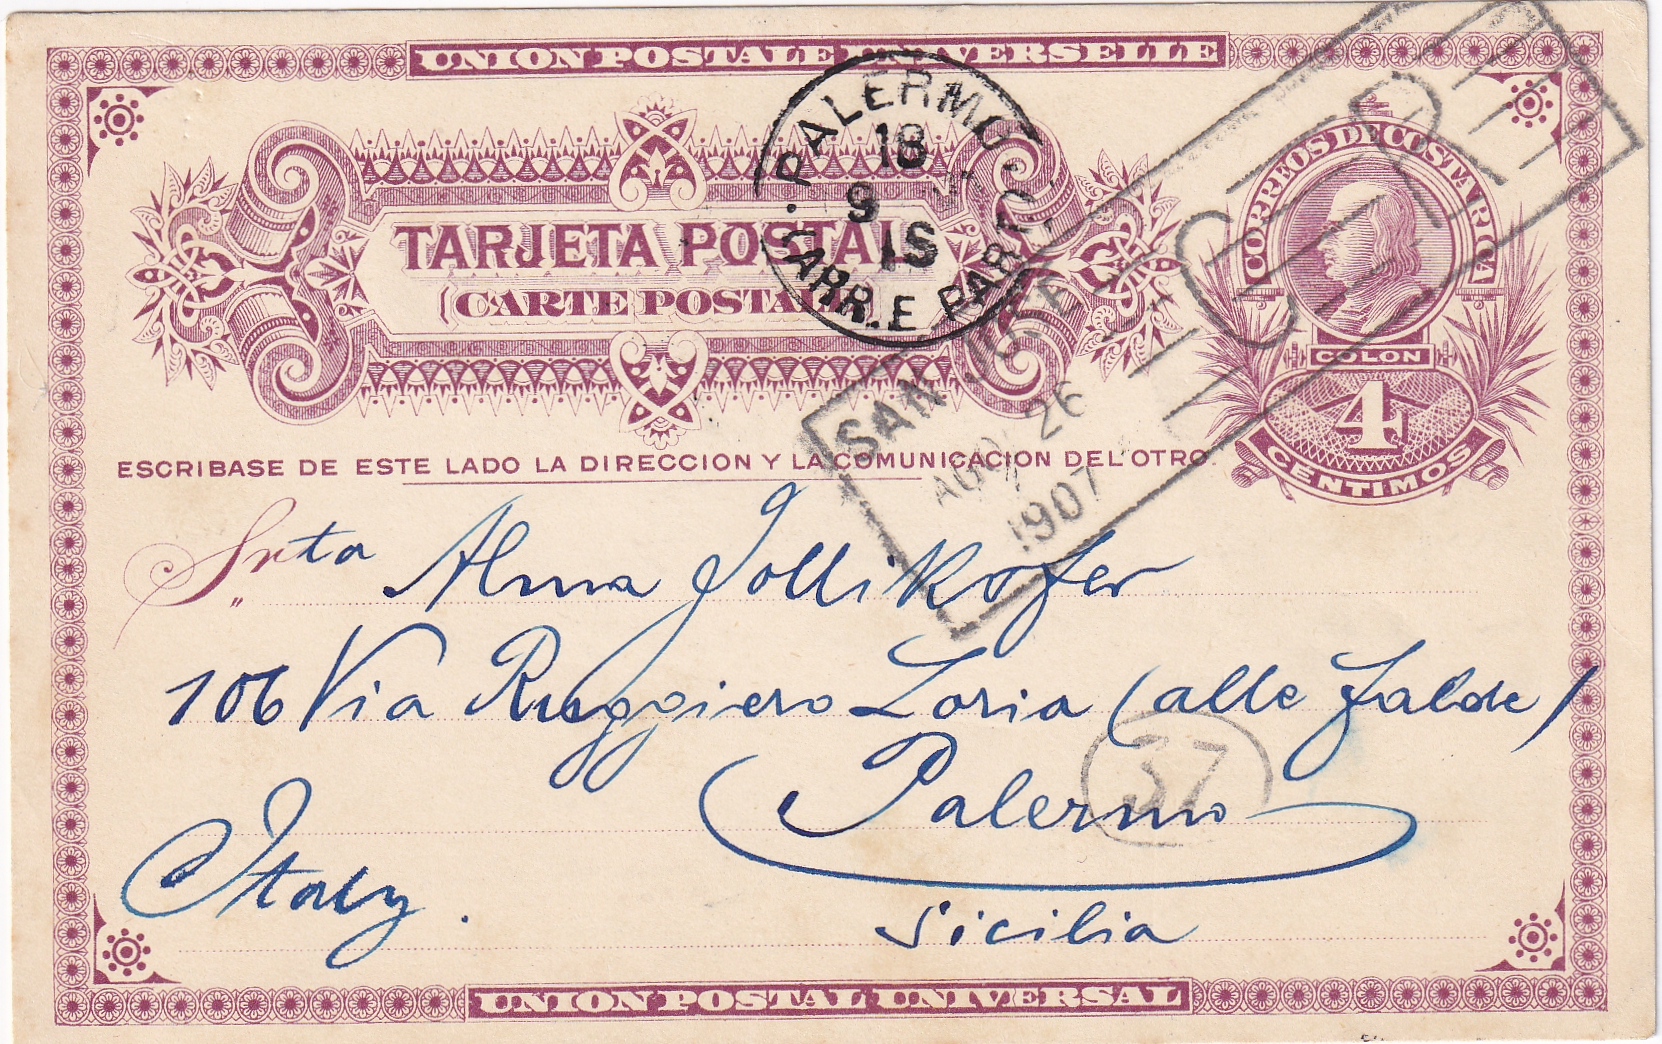 UNION POSTALE UNIVERSELLE
TARJETA POSTAL
(CARTE POSTALE)
CORREOS DE COSTA RICA
COLON
4
CENTIMOS
PALERMO
18
9
1S
ARR.E
SAN JOSE
C.R.
AGO 26
1907
ESCRIBASE DE ESTE LADO LA DIRECCION Y LA COMUNICACION DEL OTRO.
Srta Alma Zollikofer
106 Via Ruggiero Loria (alle falde)
37
Palermo
Italy.
Sicilia
UNION POSTAL UNIVERSAL